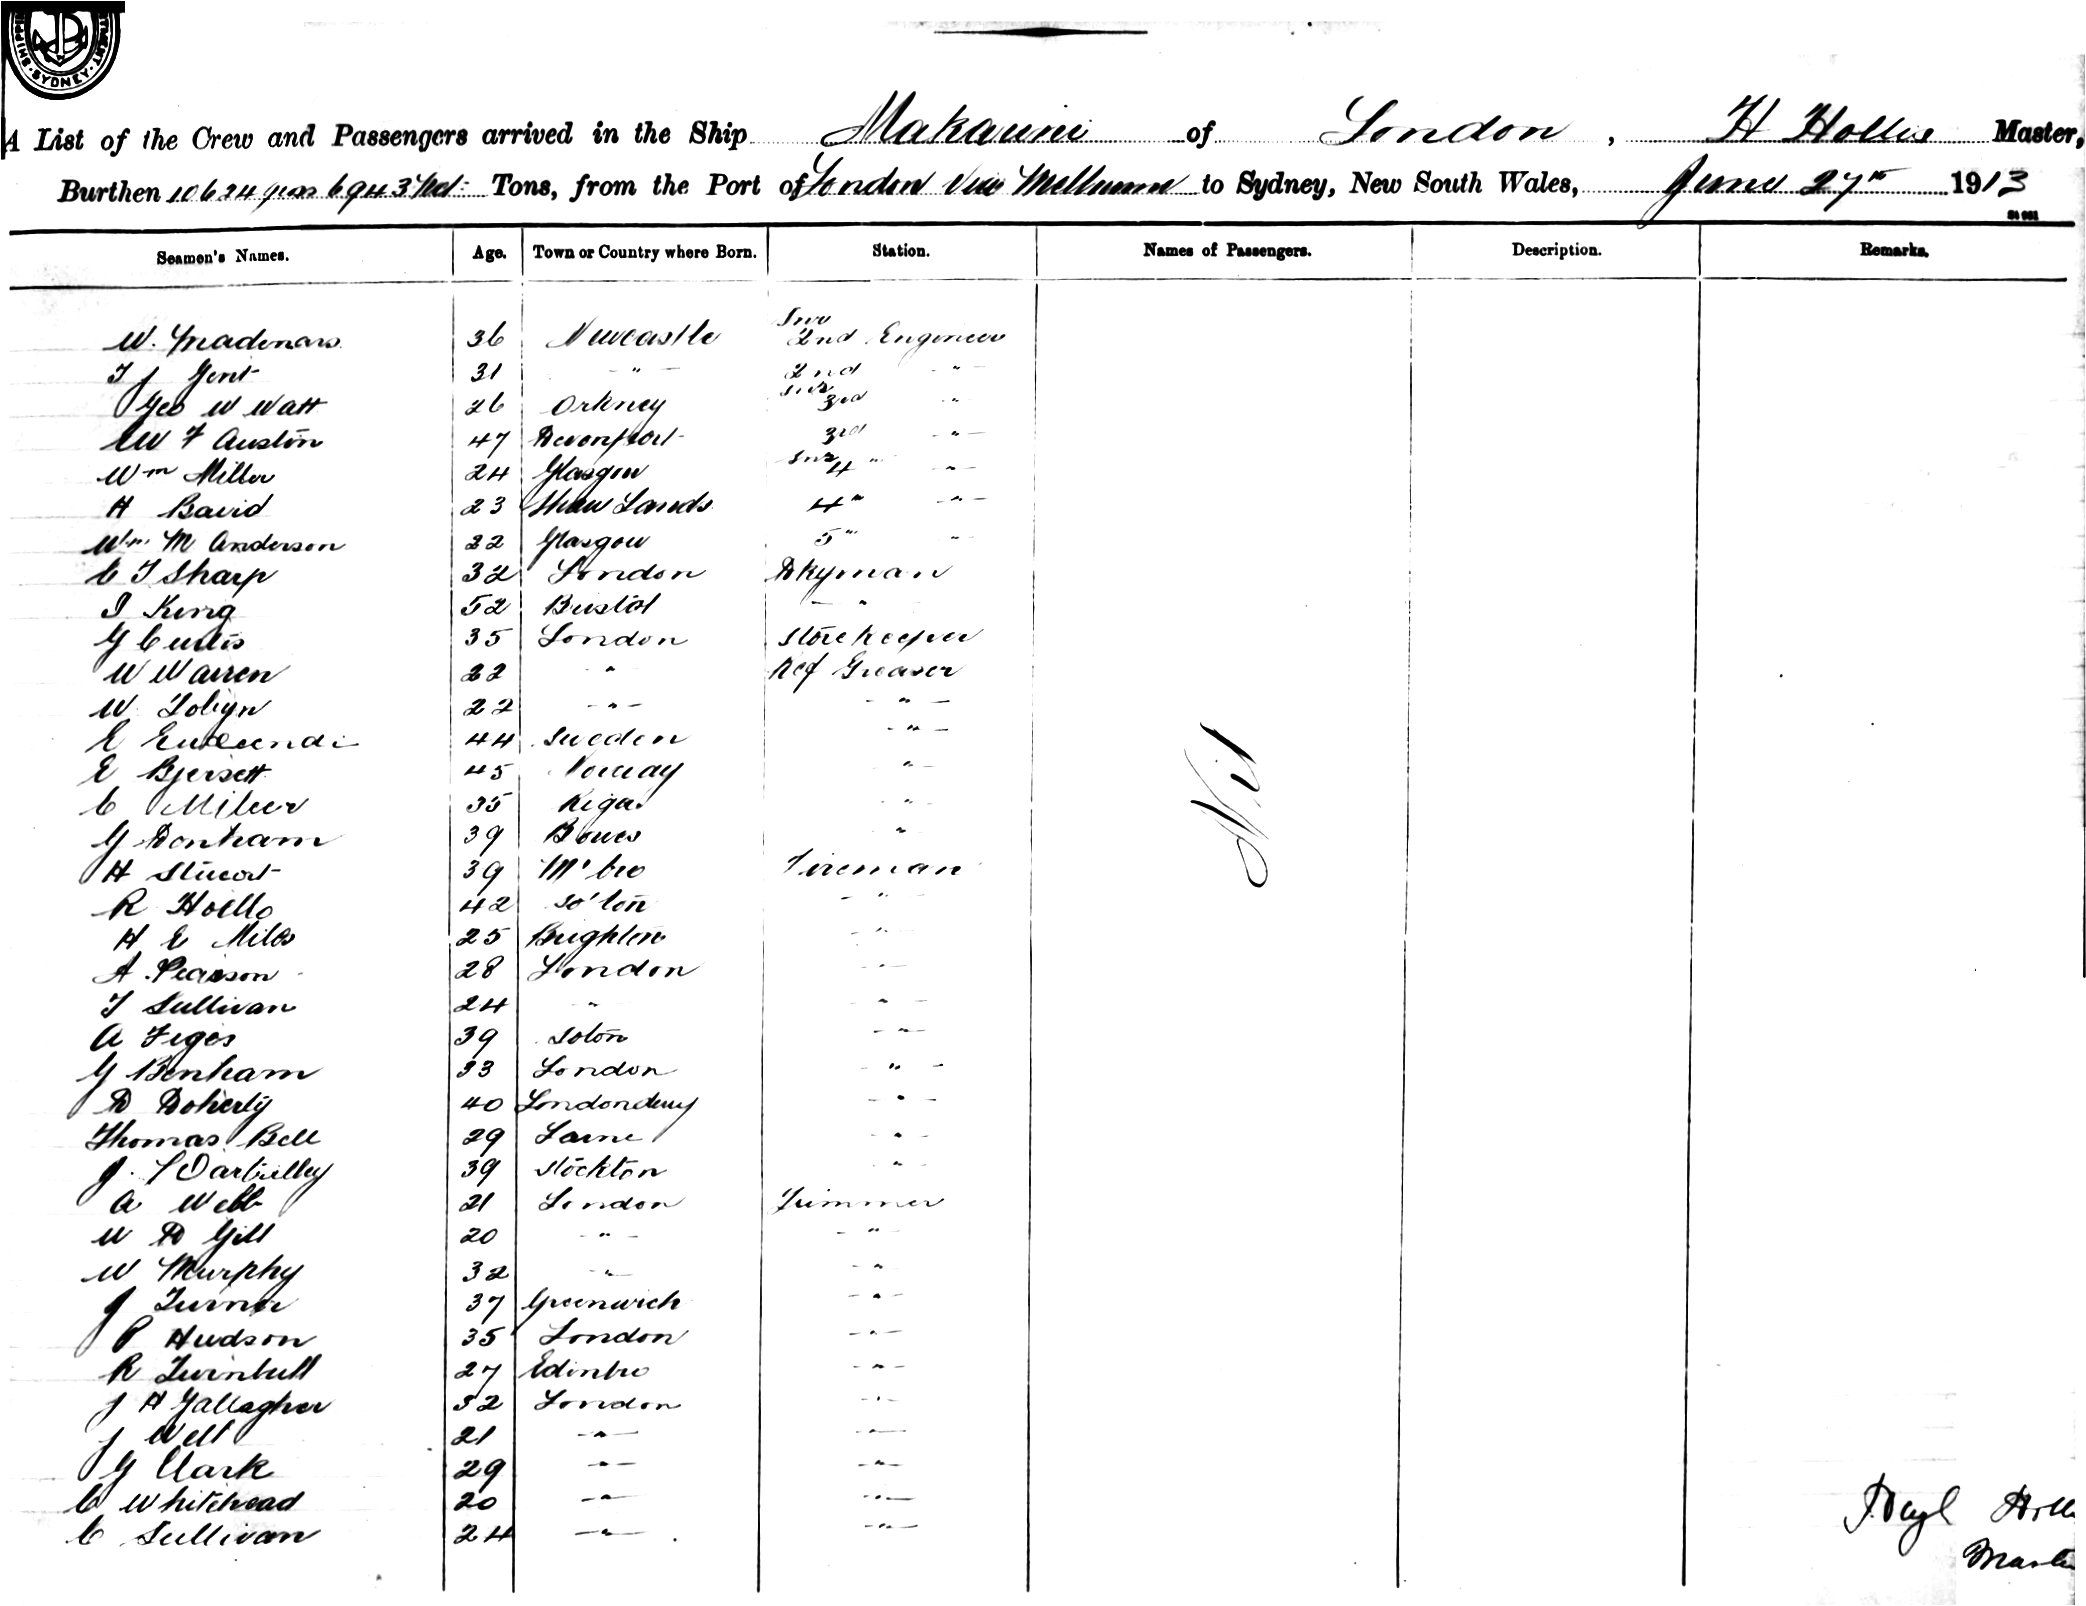 SHIPPING DEPARTMENT SYDNEY
A List of the Crew and Passengers arrived in the Ship Makarini of London, H Hollis Master,
Burthen 10624 gross 6943 Net Tons, from the Port of London via Melbourne to Sydney, New South Wales, June 27th 1913
Seamen's Names. Age. Town or Country where Born. Station. Names of Passengers. Description. Remarks.
W. 36 Newcastle Snr 2nd Engineer
T J Gent 31 " 2nd "
Geo W Watt 26 Orkney Snr 3rd "
W F Austin 47 Devonport 3rd "
Wm Miller 24 Glasgow Snr 4" "
H Baird 23 Shaw Lands 4" "
Wm M Anderson 22 Glasgow 5" "
C T Sharp 32 London Dkyman
I King 52 Bristol "
G Curtis 35 London Storekeeper
W Warren 22 " Ref Greaser
W Tobyn 22 " "
E 44 Sweden "
E Bjersett 45 Norway "
C 35 Riga "
G Donham 39 "
H Stewart 39 M'bro Fireman
R 42 So'ton "
H E Miles 25 Brighton "
A Pearson 28 London "
T Sullivan 24 " "
A Feges 39 Soton "
G Benham 33 London "
D Doherty 40 Londonderry "
Thomas Bell 29 Larne "
J. 39 Stockton "
A Webb 21 London Trimmer
W D Gill 20 " "
W Murphy 32 " "
J Turner 37 Greenwich "
P Hudson 35 London "
R Turnbull 27 Edinbro "
J H Gallagher 32 London "
J 21 " "
G Clark 29 " "
C Whitehead 20 " "
C Sullivan 24 " "
Nil
Master